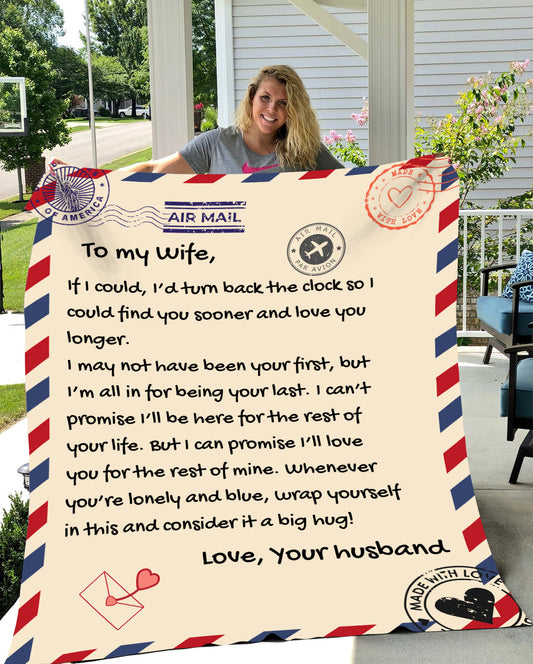 OF AMERICA
AIR MAIL
MADE WITH LOVE
AIR MAIL
PAR AVION
To my Wife,
If I could, I'd turn back the clock so I
could find you sooner and love you
longer.
I may not have been your first, but
I'm all in for being your last. I can't
promise I'll be here for the rest of
your life. But I can promise I'll love
you for the rest of mine. Whenever
you're lonely and blue, wrap yourself
in this and consider it a big hug!
Love, Your husband
MADE WITH LOVE